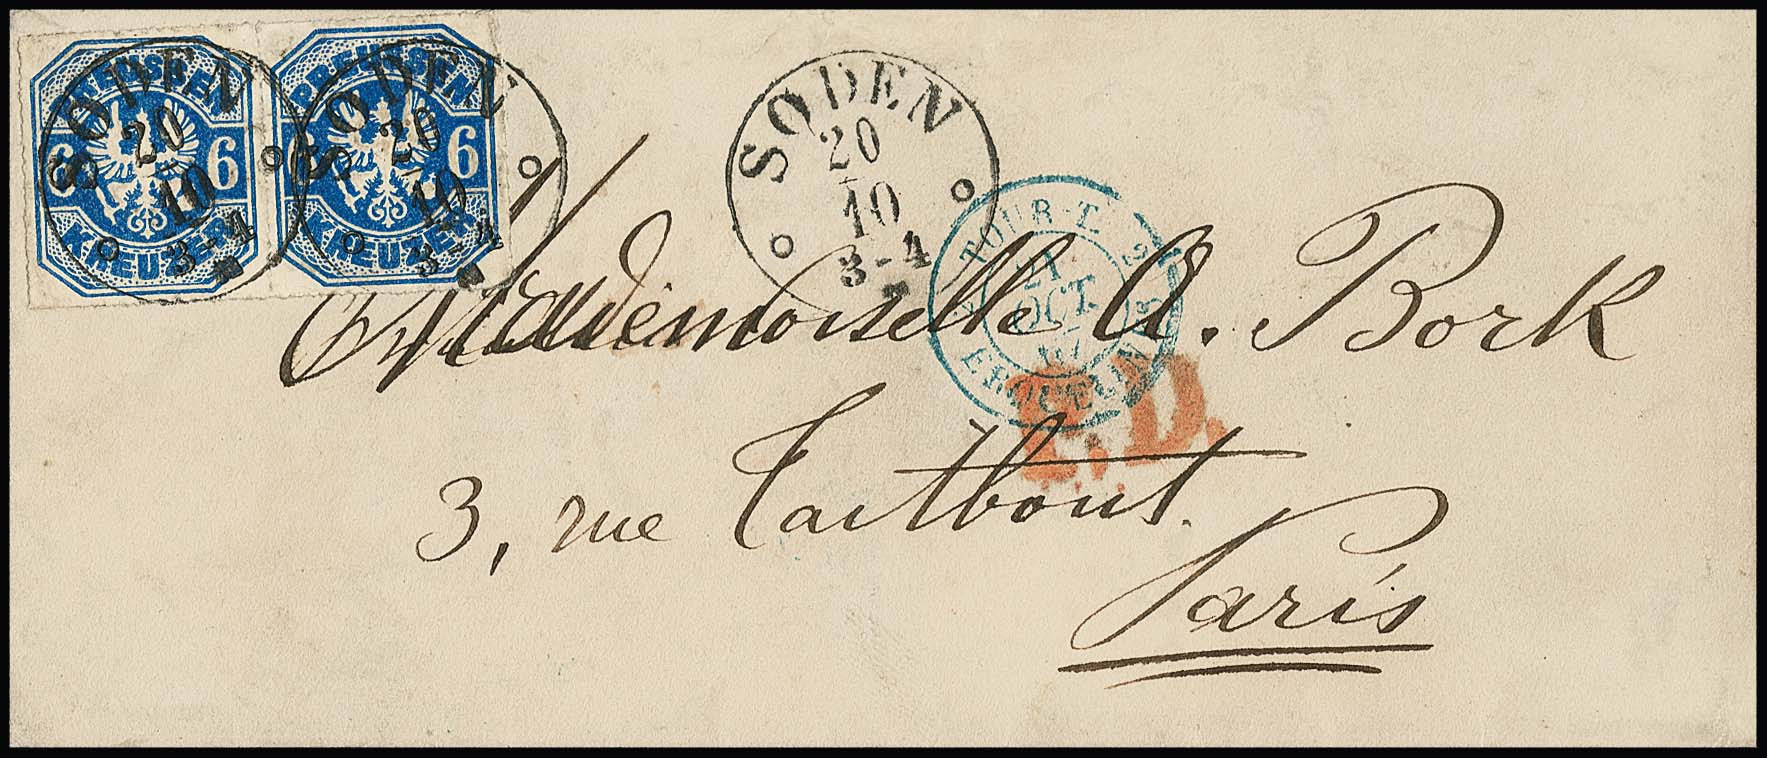 PREUSSEN
6 6
KREUZER
PREUSSEN
6 6
KREUZER
SODEN
20
10
3-4
SODEN
20
10
3-4
SODEN
20
10
3-4
TOUR-T.
21
OCT.
67
P.D.
Mademoiselle A. Bork
3, rue Taitbout.
Paris